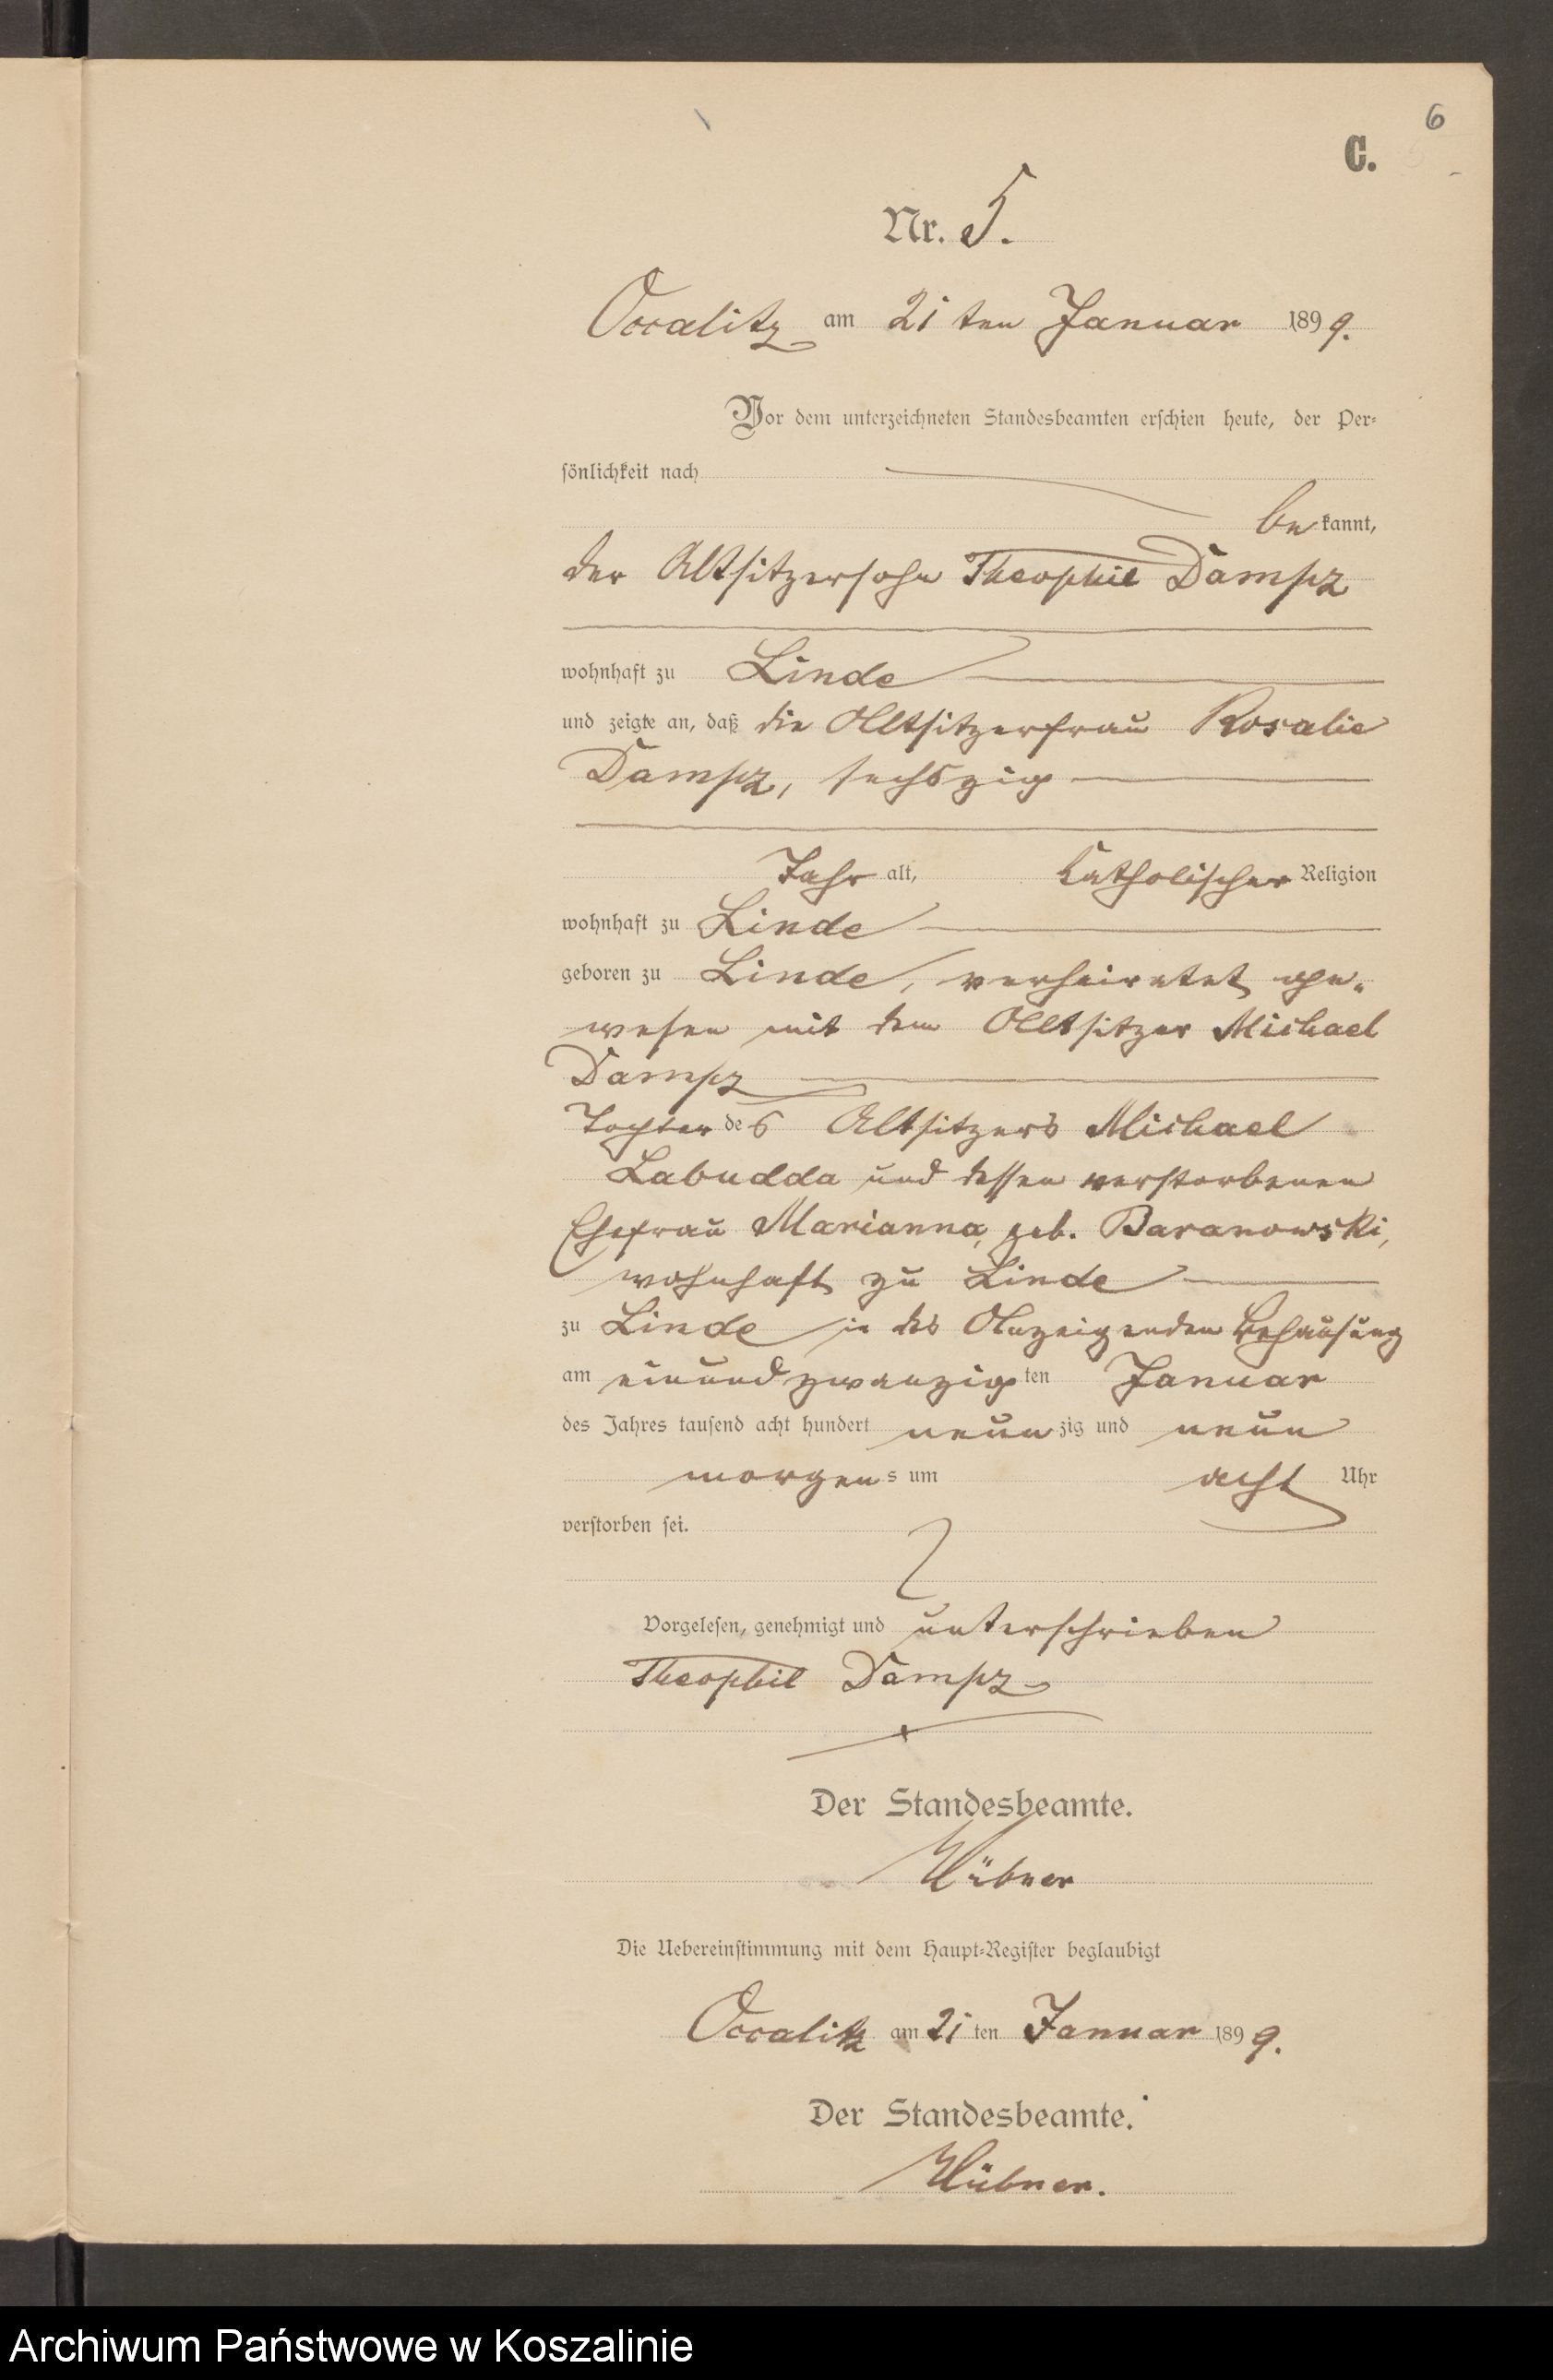 6
C.
Nr. 5.
Occalitz am 21 ten Januar 1899.
Vor dem unterzeichneten Standesbeamten erschien heute, der Per-
sönlichkeit nach
be kannt,
der Altsitzersohn Theophil Dampz
wohnhaft zu Linde
und zeigte an, daß die Altsitzerfrau Rosalie
Dampz, sechszig
Jahr alt, katholischer Religion
wohnhaft zu Linde
geboren zu Linde, verheiratet ge-
wesen mit dem Altsitzer Michael
Dampz
Tochter des Altsitzers Michael
Labudda und dessen verstorbenen
Ehefrau Marianna, geb. Baranowski,
wohnhaft zu Linde
zu Linde in des Anzeigenden Behausung
am einundzwanzig ten Januar
des Jahres tausend acht hundert neun zig und neun
morgen s um acht Uhr
verstorben sei.
Vorgelesen, genehmigt und unterschrieben
Theophil Dampz
Der Standesbeamte.
Hübner
Die Uebereinstimmung mit dem Haupt-Register beglaubigt
Occalitz am 21 ten Januar 1899.
Der Standesbeamte.
Hübner.
Archiwum Państwowe w Koszalinie